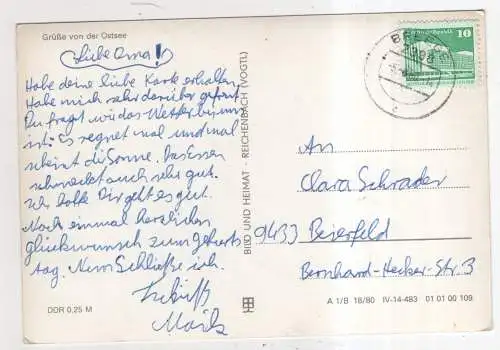 Grüße von der Ostsee
Liebe Oma!
Habe deine liebe Karte erhalten
Habe mich sehr darüber gefreut
Du fragst wie das Wetter bei uns
ist: Es regnet mal und mal
scheint die Sonne. Das Essen
schmeckt auch sehr gut.
Ich hoffe Dir geht es gut.
Noch einmal herzlichen
glückwunsch zum Geburts
tag. Nun Schließe ich.
Maik
DDR 0,25 M
BILD UND HEIMAT · REICHENBACH (VOGTL)
10
An
Clara Schrader
9433 Beierfeld
Bernhard-Hecker-Str. 3
A 1/B 18/80 IV-14-483 01 01 00 109